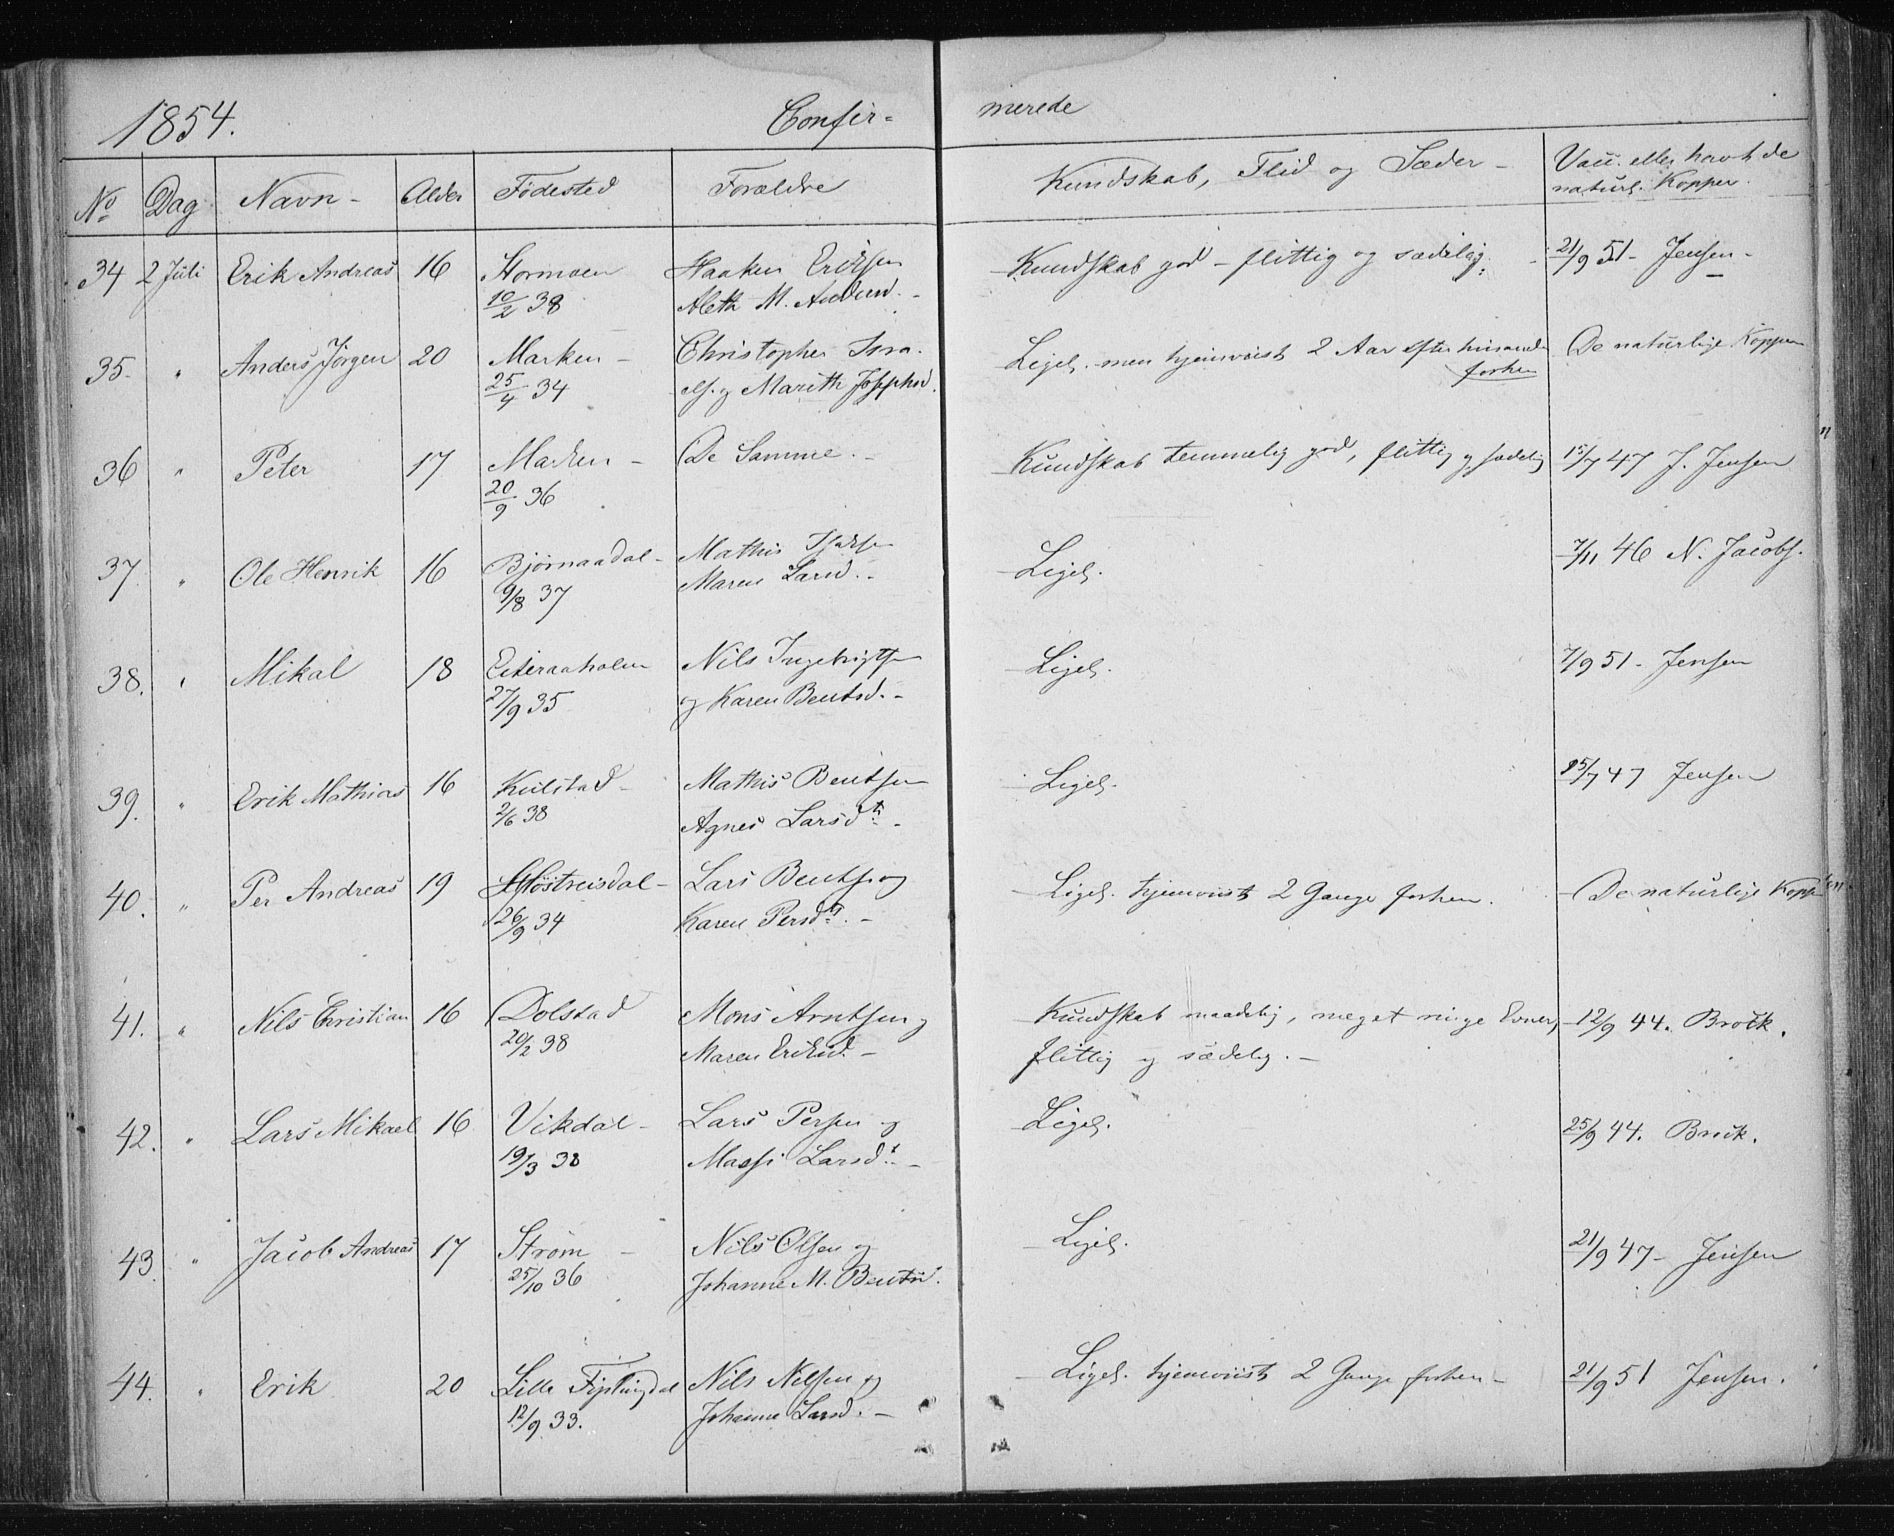 1854. Confir- merede
No Dag Navn - Alder Fødested Forældre Kundskab, Flid og Sæder - Vacc. eller havt de
naturl. Kopper.
34 2 Juli Erik Andreas 16 Stormoen Haaken Eriksen Kundskab god - flittig og sædelig. 21/9 51 - Jensen -
10/2 38 Aleth M. Andersd. -
35. " Anders Jörgen 20 Marken - Christopher Isra- Ligel. men hjemviist 2 Aar efter hinanden De naturlige Kopper
25/4 34 els. og Marith Josephsd. forhen
36 " Peter 17 Marken - De Samme. - Kundskab temmelig god, flittig og sædelig 15/7 47 J. Jensen
20/9 36
37. " Ole Henrik 16 Bjørnaadal - Mathis Ligel. 7/11 46 N. Jacobs.
9/8 37 Maren Larsd. -
38. " Mikal 18 Eiteraaholm Nils Ingebrigtsen Ligel. 7/9 51 - Jensen
27/9 35 og Karen Bentsd. -
39. " Erik Mathias 16 Kulstad - Mathis Bentsen Ligel. 15/7 47 Jensen
2/6 38 Agnes Larsdtr. -
40. " Per Andreas 19 Lars Bents. og Ligel. hjemviist 2 Gange forhen. De naturlige Koppen.
26/9 34 Karen Persdtr. -
41. " Nils Christian 16 Dolstad Mons Arntsen og Kundskab maadelig, meget ringe Evner, 12/9 44. Brock.
20/2 38 Maren Eriksd. - flittig og sædelig. -
42. " Lars Mikael 16 Vikdal - Lars Persen og Ligel. 25/9 44. Brock.
19/3 38 Massi Larsdt. -
43. " Jacob Andreas 17 Strøm - Nils Olsen og Ligel. 21/9 47 - Jensen
25/10 36 Johanne M. Bentsd.
44. " Erik 20 Lille Fiplingdal Nils Nilsen og Ligel. hjemviist 2 Gange forhen - 21/9 51 Jensen.
12/9 33. Johanne Larsd. -